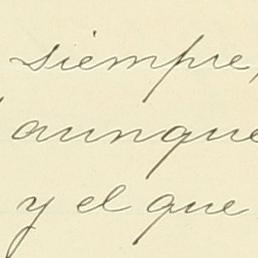 siempre,
aunque
y el que